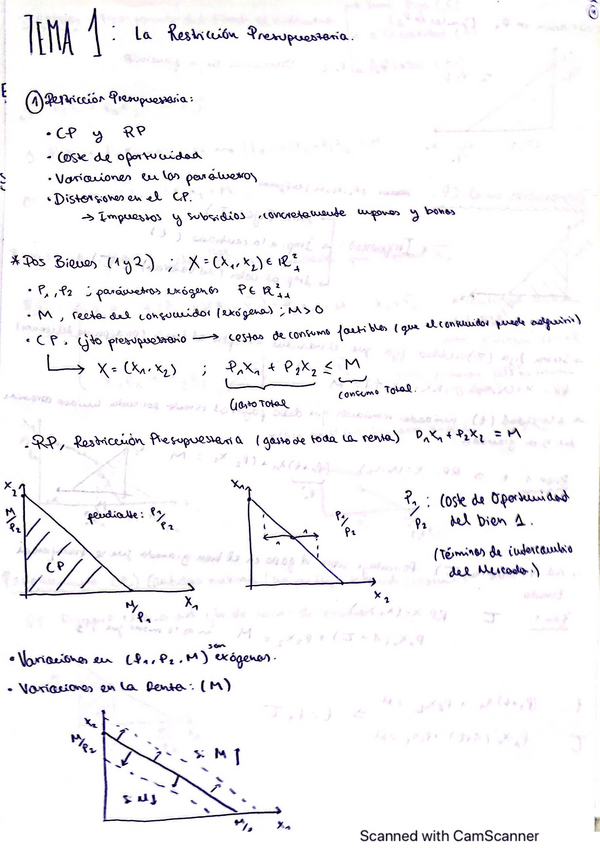 TEMA 1: La Restricción Presupuestaria.
① Restricción Presupuestaria:
· CP y RP
· Coste de oportunidad
· Variaciones en los parámetros
· Distorsiones en el CP.
→ Impuestos y subsidios, concretamente cupones y bonos
* Dos Bienes (1 y 2) ; X = (X₁, X₂) ∈ ℝ²₊
· P₁, P₂ ; parámetros exógenos P ∈ ℝ²₊₊
· M, renta del consumidor (exógena) ; M > 0
· CP, Cjto presupuestario → cestas de consumo factibles (que el consumidor puede adquirir)
X = (X₁, X₂) ; P₁X₁ + P₂X₂ ≤ M
Gasto Total
consumo Total.
- RP, Restricción Presupuestaria (gasto de toda la renta) P₁X₁ + P₂X₂ = M
X₂
M/P₂
pendiente: P₁/P₂
CP
M/P₁
X₁
X₁
1
1
P₁/P₂
X₂
P₁/P₂ : Coste de Oportunidad
del bien 1.
(Términos de intercambio
del Mercado.)
· Variaciones en (P₁, P₂, M) son exógenos.
· Variaciones en la Renta: (M)
X₂
M/P₂
si M ↑
si M ↓
X₁
Scanned with CamScanner